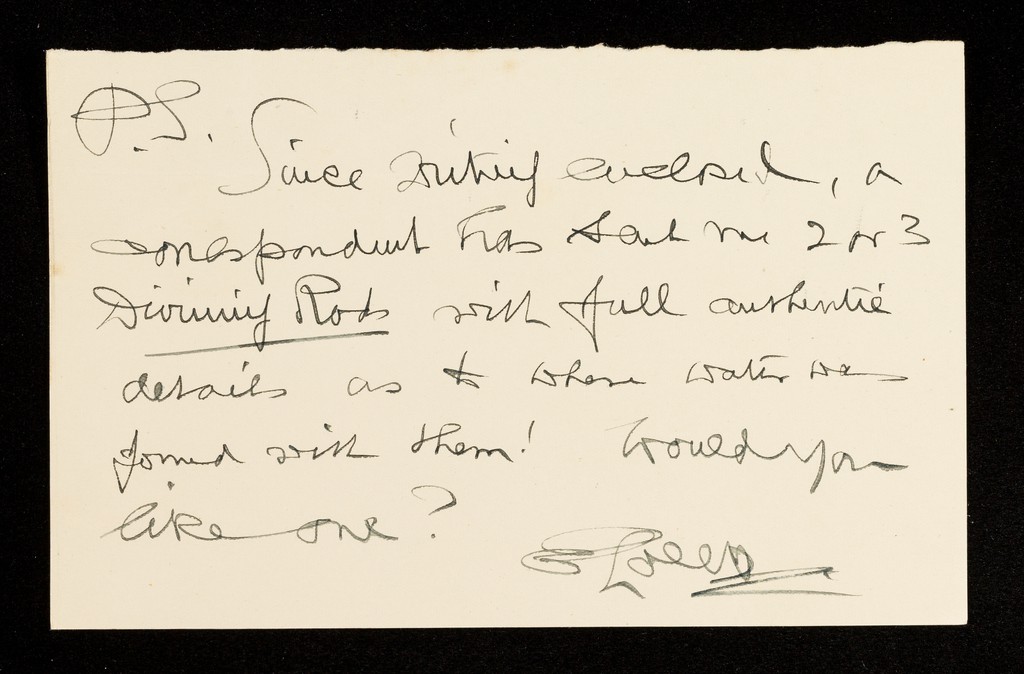 P.S.
Since writing enclosed, a
correspondent has sent me 2 or 3
Divining Rods with full authentic
details as to where water was
found with them! Would you
like one?